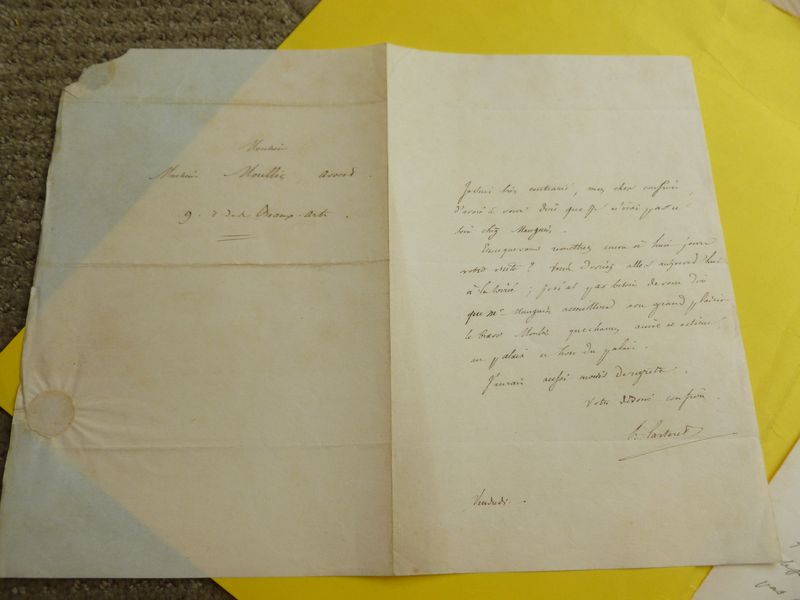 Monsieur
Monsieur Moullin avocat.
9. r. des Beaux-arts.
Je suis très contrarié, mon cher confrère,
d'avoir à vous dire que je n'irai pas ce
soir chez Mauguin.
remettriez encore à huit jours
votre visite? devriez aller aujourd'hui
à la soirée; je n'ai pas besoin de vous dire
que Mr Mauguin accueillera avec grand plaisir
le brave que chacun aime et estime
au palais et hors du palais.
J'aurai aussi moins de regrets.
Votre dévoué confrère.
Vendredi.